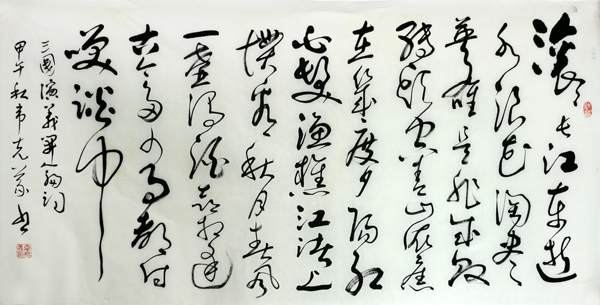 滚滚长江东逝
水浪花淘尽
英雄是非成败
转头空青山依旧
在几度夕阳红
白发渔樵江渚上
惯看秋月春风
一壶浊酒喜相逢
古今多少事都付
笑谈中
三國演義開篇词
甲午秋韦克书